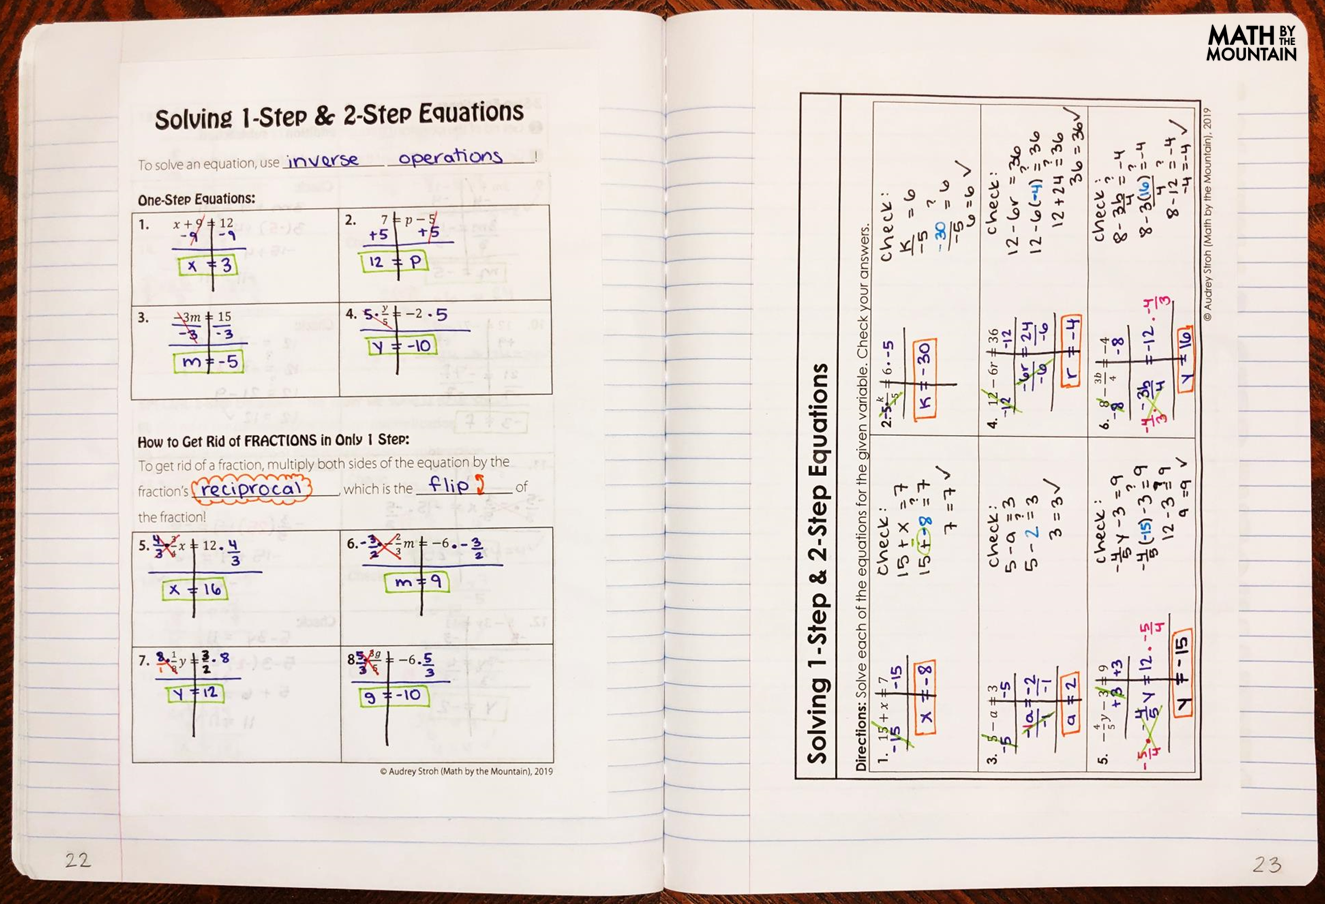 MATH BY THE MOUNTAIN
Solving 1-Step & 2-Step Equations
To solve an equation, use inverse operations !
One-Step Equations:
1. x + 9 = 12
-9 -9
x = 3
2. 7 = p − 5
+5 +5
12 = P
3. −3m = 15
-3 -3
m = -5
4. 5 · y/5 = −2 · 5
y = -10
How to Get Rid of FRACTIONS in Only 1 Step:
To get rid of a fraction, multiply both sides of the equation by the
fraction's reciprocal , which is the flip of
the fraction!
5. 4/3 · 3/4 x = 12 · 4/3
x = 16
6. -3/2 · −2/3 m = −6 · -3/2
m = 9
7. 8/1 · 1/8 y = 3/2 · 8
y = 12
8. 5/3 · 3g/5 = −6 · 5/3
g = -10
© Audrey Stroh (Math by the Mountain), 2019
22
Solving 1-Step & 2-Step Equations
Directions: Solve each of the equations for the given variable. Check your answers.
1. 15 + x = 7
-15 -15
x = -8
check:
15 + x = 7
15 + -8 ?= 7
7 = 7 ✓
2. -5 · k/−5 = 6 · -5
K = -30
check:
K/-5 = 6
-30/-5 ?= 6
6 = 6 ✓
3. 5 − a = 3
-5 -5
-1a/-1 = -2/-1
a = 2
check:
5 - a = 3
5 - 2 ?= 3
3 = 3 ✓
4. 12 − 6r = 36
-12 -12
-6r/-6 = 24/-6
r = -4
check:
12 - 6r = 36
12 - 6(-4) ?= 36
12 + 24 ?= 36
36 = 36 ✓
5. −4/5 y − 3 = 9
+3 +3
-5/4 · -4/5 y = 12 · -5/4
y = -15
check:
-4/5 y - 3 = 9
-4/5 (-15) - 3 ?= 9
12 - 3 ?= 9
9 = 9 ✓
6. 8 − 3b/4 = −4
-8 -8
-4/3 · -3b/4 = -12 · -4/3
y = 16
check:
8 - 3b/4 = -4
8 - 3(16)/4 ?= -4
8 - 12 ?= -4
-4 = -4 ✓
© Audrey Stroh (Math by the Mountain), 2019
23